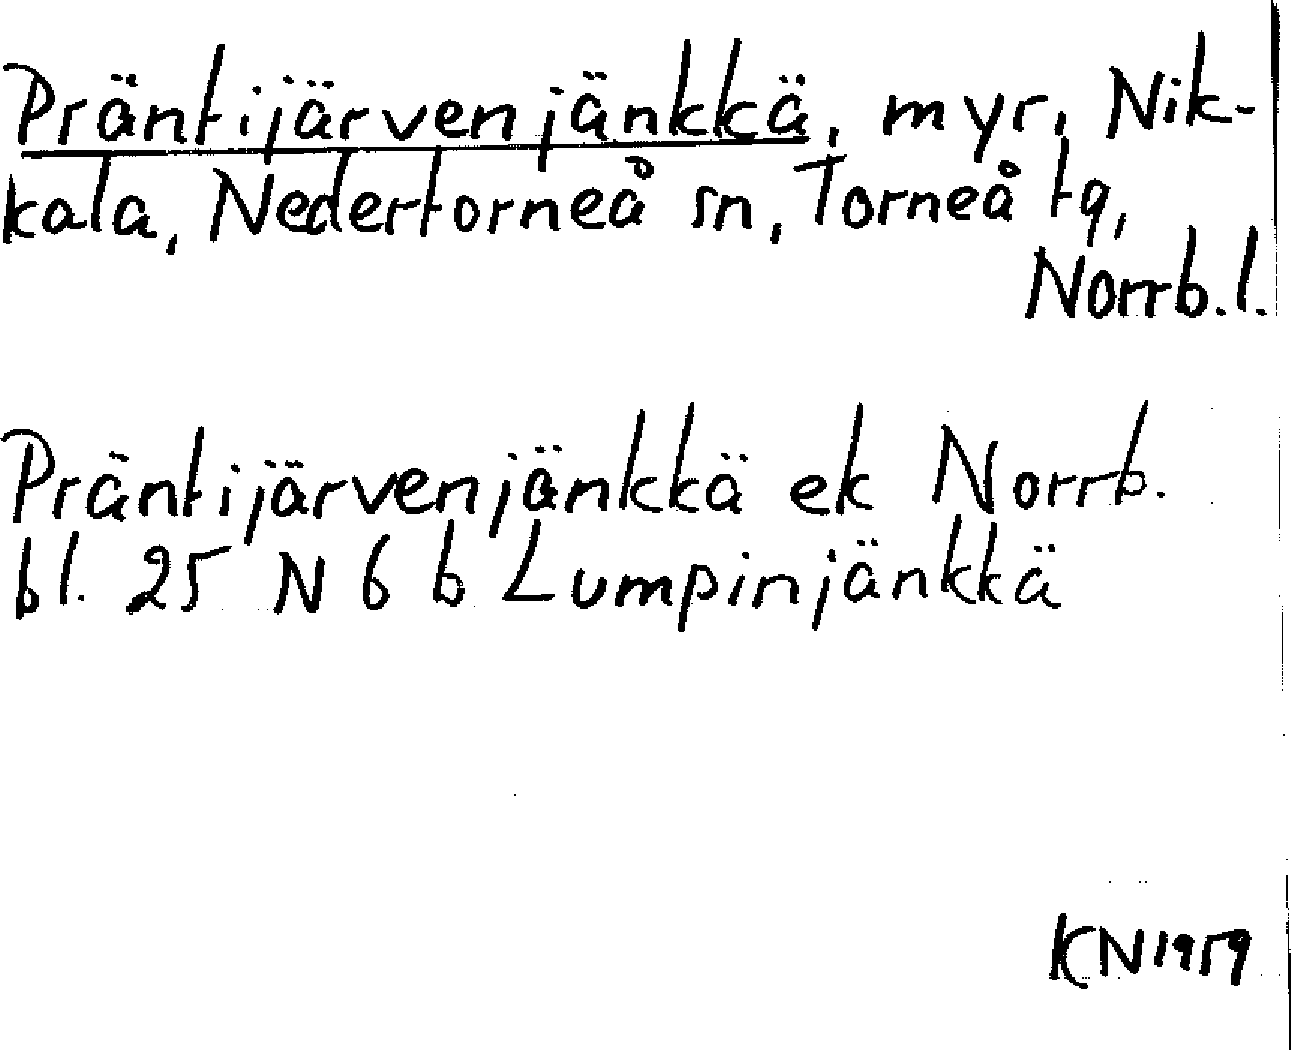 Präntijärvenjänkkä, myr, Nik-
kala, Nedertorneå sn, Torneå tg,
Norrb. l.
Präntijärvenjänkkä ek Norrb.
bl. 25 N 6 b Lumpinjänkkä
KN 1959